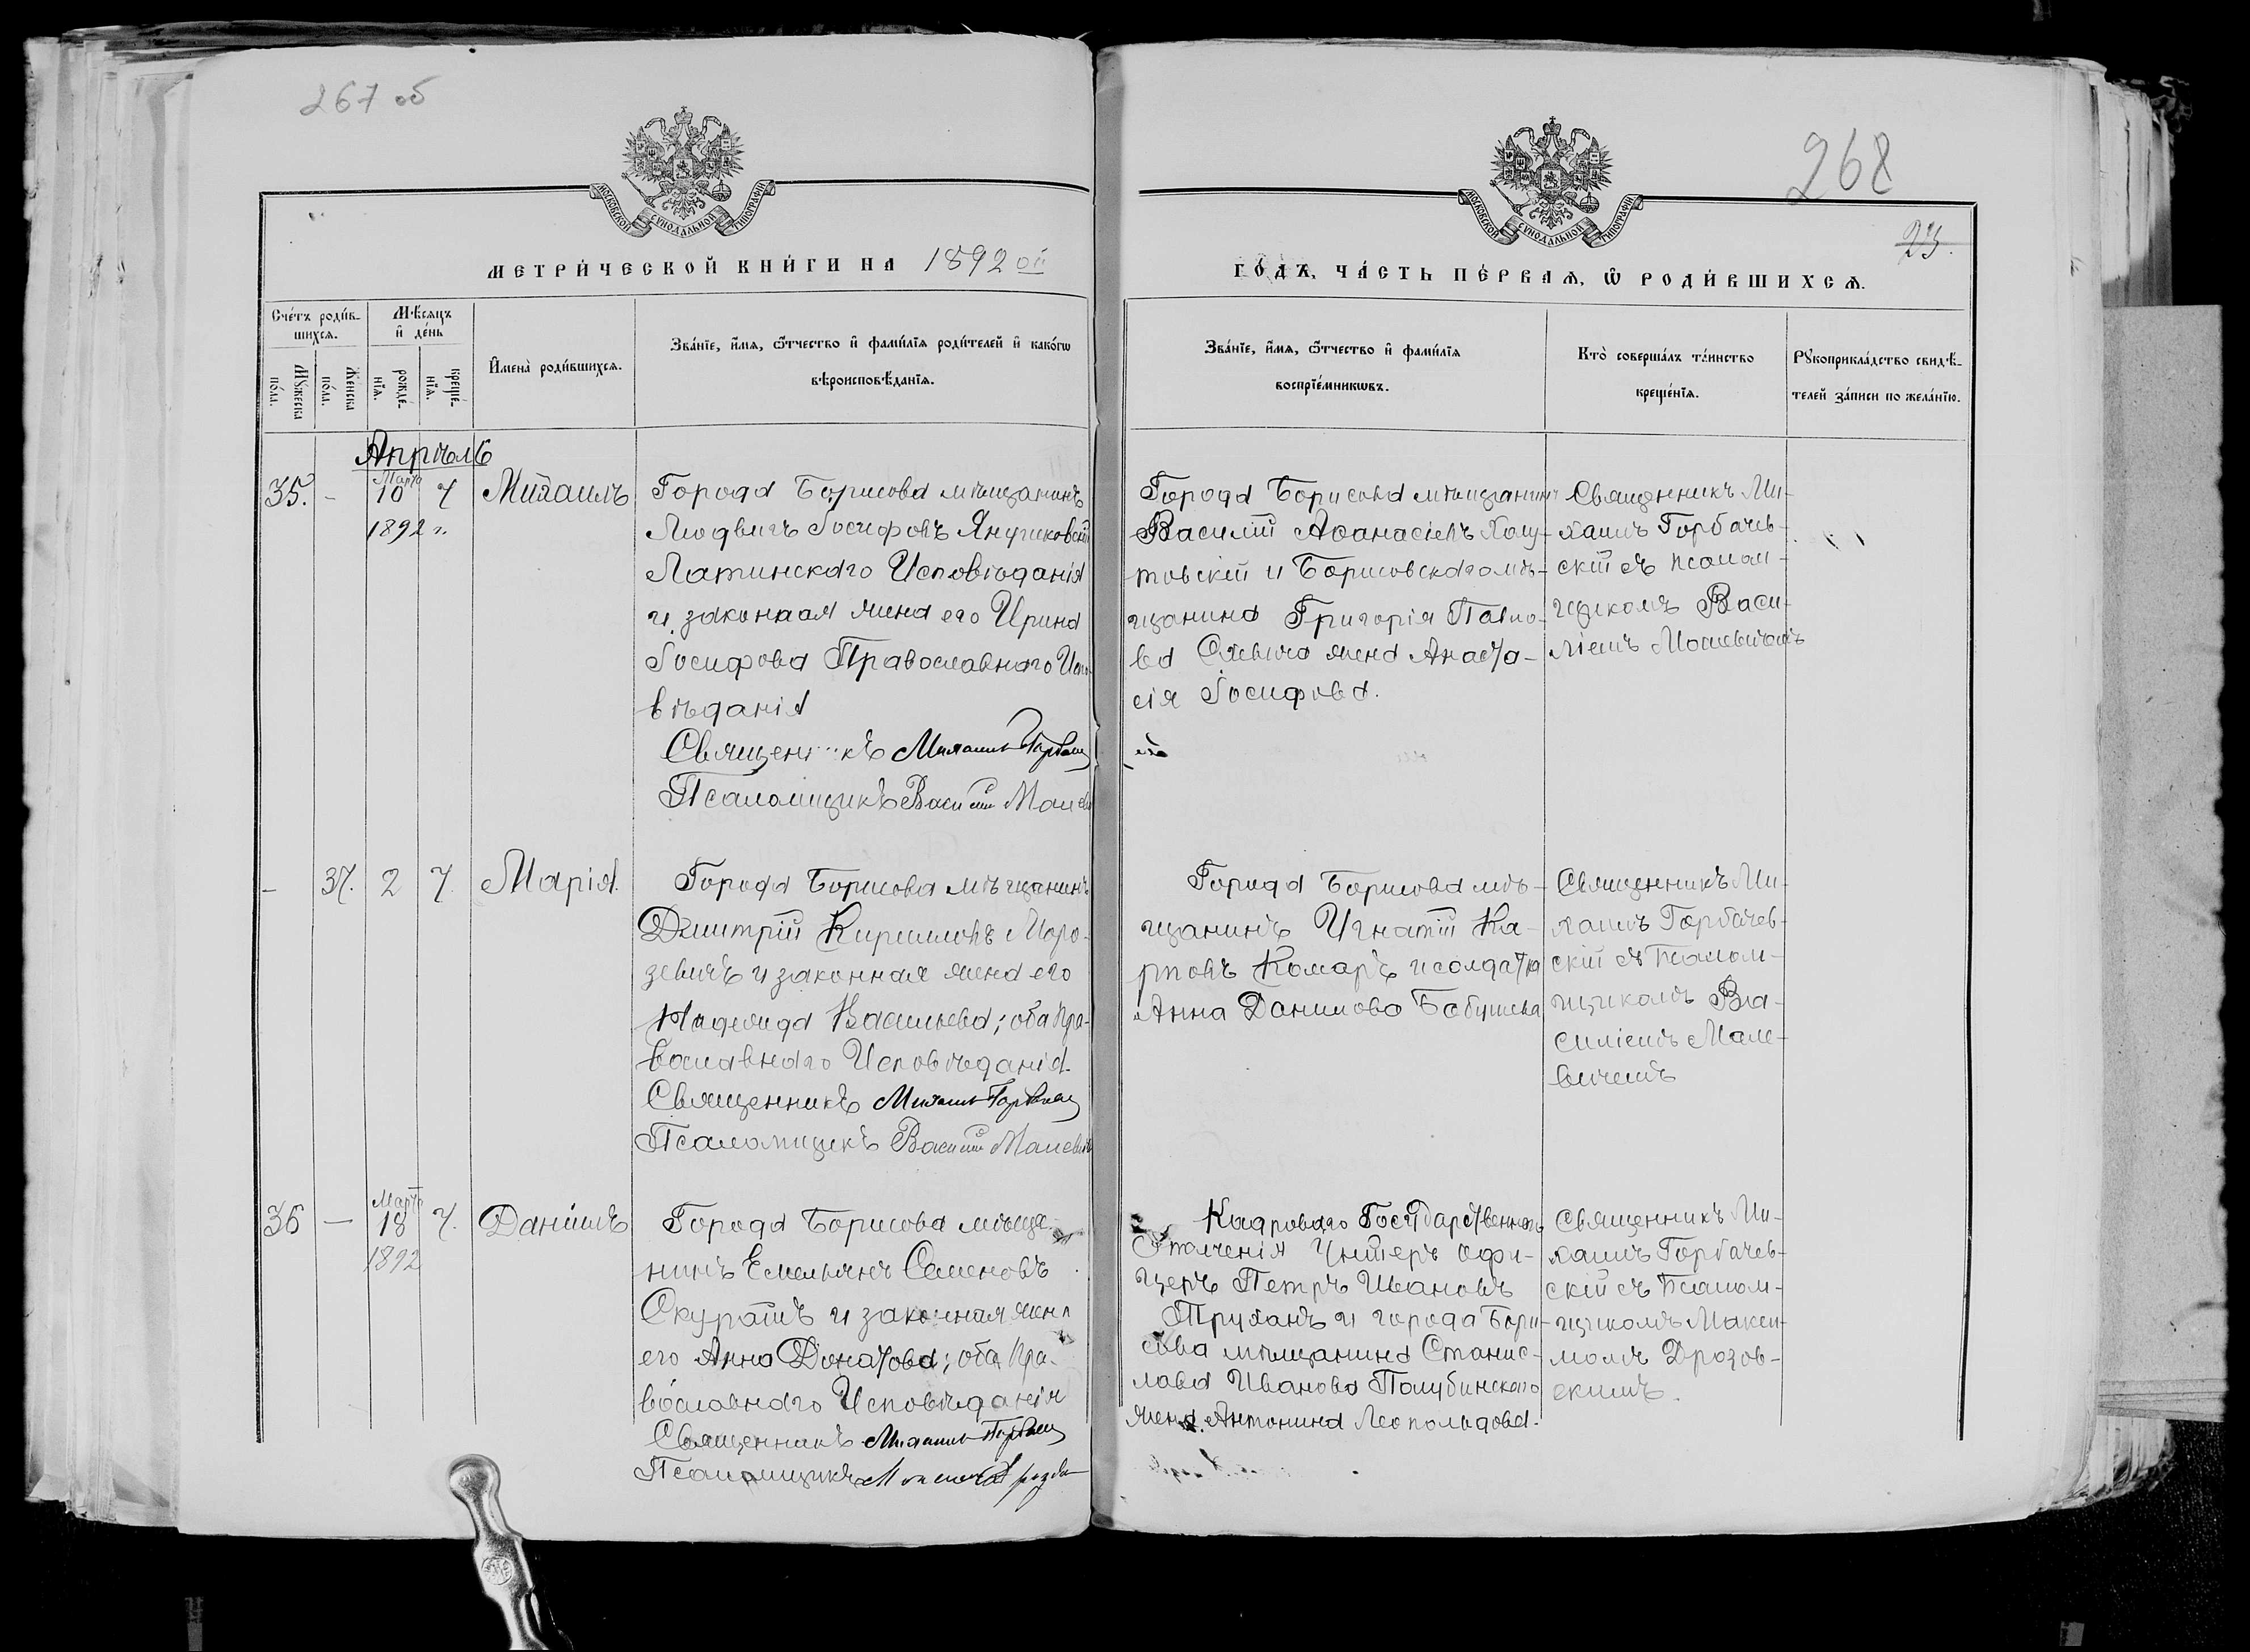 267 об
268
23.
МОСКОВСКОЙ СѴНОДАЛЬНОЙ ТИПОГРАФІИ
МОСКОВСКОЙ СѴНОДАЛЬНОЙ ТИПОГРАФІИ
МЕТРИ́ЧЕСКОЙ КНИ́ГИ НА 1892 ой
ГО́ДЪ, ЧА́СТЬ ПЕ́РВАѦ, Ѿ РОДИ́ВШИХСѦ.
Сче́тъ роди́в-
шихсѧ.
Мꙋжеска
по́ла.
Женска
по́ла.
Мѣ́сѧцъ
и҆ де́нь
рожде́-
нїѧ.
креще́-
нїѧ.
И҆мена̀ роди́вшихсѧ.
Зва́нїе, и҆́мѧ, ѻ҆́тчество и҆ фами́лїѧ роди́телей и҆ како́гѡ
вѣроисповѣ́данїѧ.
Зва́нїе, и҆́мѧ, ѻ҆́тчество и҆ фами́лїѧ
воспрїе́мникѡвъ.
Кто̀ соверша́лъ та́инство
креще́нїѧ.
Рꙋкоприкла́дство свидѣ́-
телей за́писи по жела́нїю.
Апрѣль
35. - Марта 10 7 Михаилъ
1892 г.
Города Борисова мѣщанинъ
Людвигъ Іосифовъ Янушковскій
Латинскаго Исповѣданія
и законная жена его Ирина
Іосифова Православнаго Испо
вѣданія
Священникъ Михаилъ Горбач
Псаломщикъ Василій Малев
Города Борисова мѣщанинъ
Василій Аѳанасіевъ Халю-
товскій и Борисовскаго мѣ-
щанина Григорія Павло-
ва жена Анаста-
сія Іосифова.
Священникъ Ми-
хаилъ Горбачев-
скій съ псалом-
щикомъ Васи-
ліемъ Малевичемъ
- 37. 2 7. Марія.
Города Борисова мѣщанинъ
Дмитрій Кирилловъ Моро-
зевичъ и законная жена его
Надежда Васильева; оба Пра-
вославнаго Исповѣданія.
Священникъ Михаилъ Горбачев
Псаломщикъ Василій Малевич
Города Борисова мѣ-
щанинъ Игнатій Ка-
рповъ Комаръ и солдатка
Анна Данилова Бабушева
Священникъ Ми-
хаилъ Горбачев-
скій съ Псалом-
щикомъ Ва-
силіемъ Мале-
вичемъ
36 — Марта 18 7. Даніилъ
1892
Города Борисова мѣща-
нинъ Емельянъ Семеновъ
Скуратъ и законная жена
его Анна Донатова; оба Пра-
вославнаго Исповѣданія
Священникъ Михаилъ Горбач
Псаломщикъ Максимъ Дрозд
Кадроваго Государственнаго
Ополченія Унтеръ Офи-
церъ Петръ Ивановъ
Труханъ и города Бори-
сова мѣщанина Станис-
лава Иванова Полубинскаго
жена Антонина Леопольдова.
Священникъ Ми-
хаилъ Горбачев-
скій съ Псалом-
щикомъ Макси-
момъ Дрозов-
скимъ.